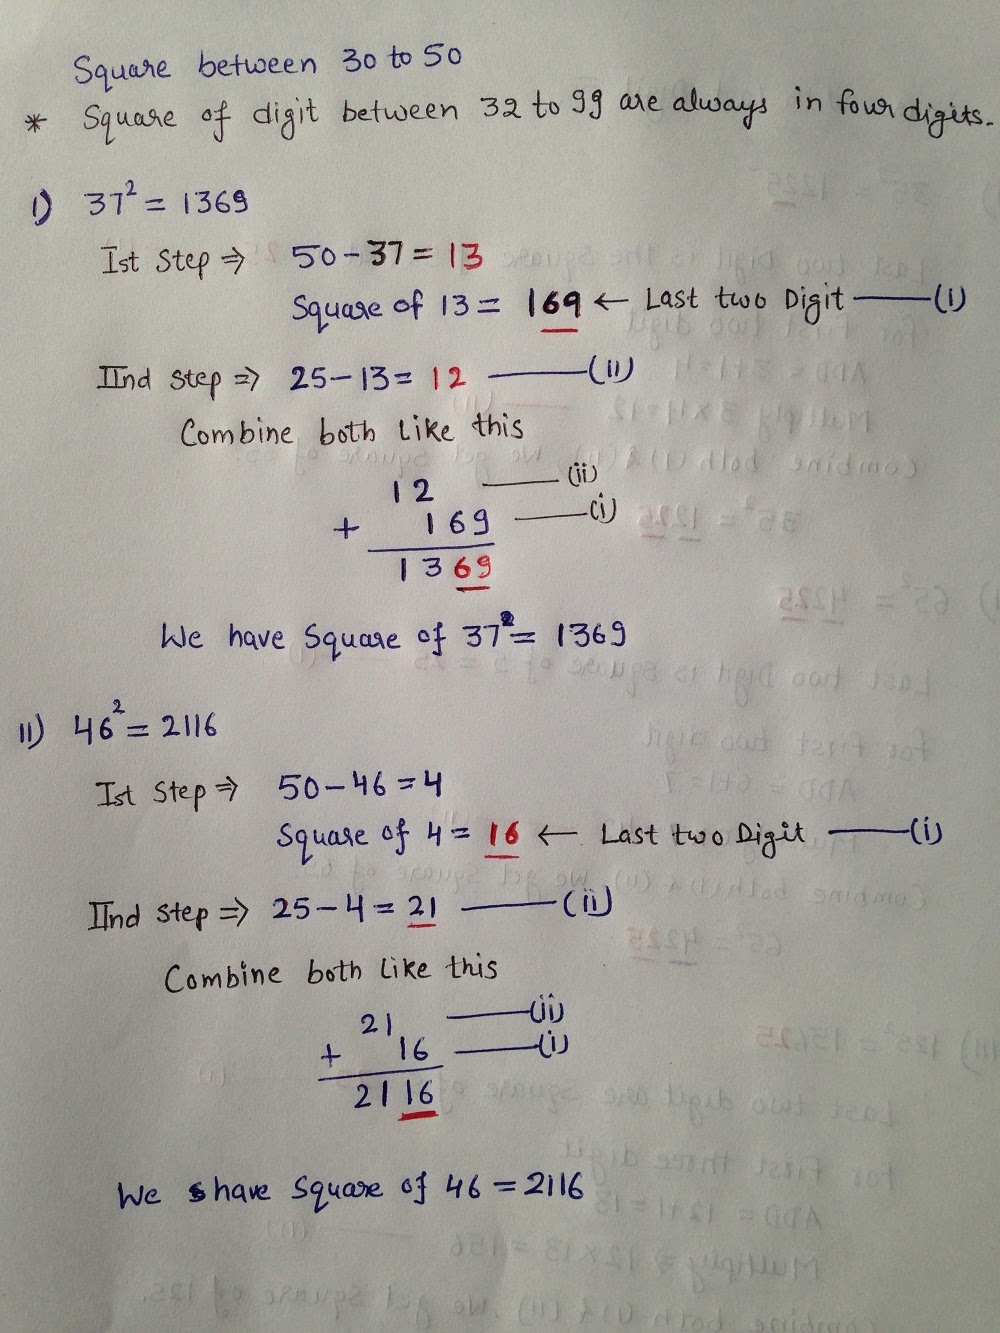 Square between 30 to 50
* Square of digit between 32 to 99 are always in four digits.
i) 37² = 1369
Ist Step ⇒ 50 - 37 = 13
Square of 13 = 169 ← Last two Digit ——(i)
IInd step ⇒ 25 - 13 = 12 ——(ii)
Combine both like this
12 ——(ii)
+ 169 ——(i)
1369
We have Square of 37² = 1369
ii) 46² = 2116
Ist Step ⇒ 50 - 46 = 4
Square of 4 = 16 ← Last two Digit ——(i)
IInd step ⇒ 25 - 4 = 21 ——(ii)
Combine both like this
21 ——(ii)
+ 16 ——(i)
2116
We have Square of 46 = 2116